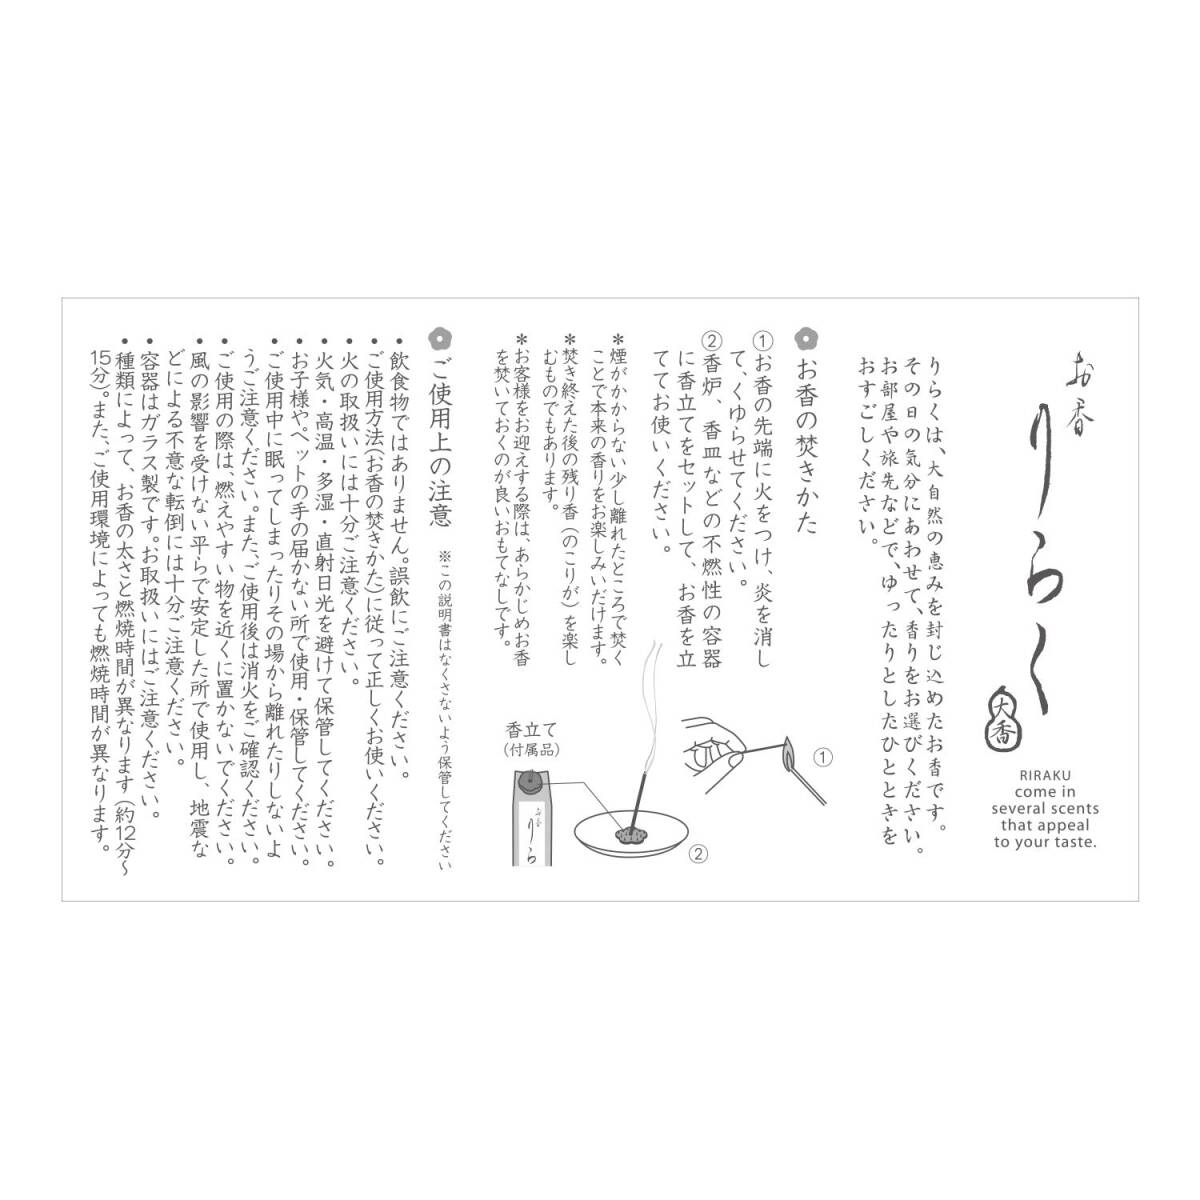 お香
りらく
大香
RIRAKU
come in
several scents
that appeal
to your taste.
りらくは、大自然の恵みを封じ込めたお香です。
その日の気分にあわせて、香りをお選びください。
お部屋や旅先などで、ゆったりとしたひとときを
おすごしください。
お香の焚きかた
①お香の先端に火をつけ、炎を消し
て、くゆらせてください。
②香炉、香皿などの不燃性の容器
に香立てをセットして、お香を立
ててお使いください。
＊煙がかからない少し離れたところで焚く
ことで本来の香りをお楽しみいだけます。
＊焚き終えた後の残り香（のこりが）を楽し
むものでもあります。
＊お客様をお迎えする際は、あらかじめお香
を焚いておくのが良いおもてなしです。
①
香立て
（付属品）
お香
りら
②
ご使用上の注意
※この説明書はなくさないよう保管してください
・飲食物ではありません。誤飲にご注意ください。
・ご使用方法（お香の焚きかた）に従って正しくお使いください。
・火の取扱いには十分ご注意ください。
・火気・高温・多湿・直射日光を避けて保管してください。
・お子様や、ペットの手の届かない所で使用・保管してください。
・ご使用中に眠ってしまったりその場から離れたりしないよ
うご注意ください。また、ご使用後は消火をご確認ください。
・ご使用の際は、燃えやすい物を近くに置かないでください。
・風の影響を受けない平らで安定した所で使用し、地震な
どによる不意な転倒には十分ご注意ください。
・容器はガラス製です。お取扱いにはご注意ください。
・種類によって、お香の太さと燃焼時間が異なります（約12分〜
15分）。また、ご使用環境によっても燃焼時間が異なります。